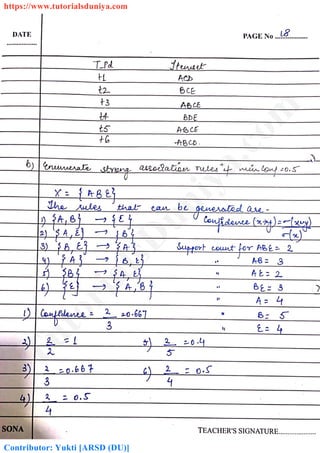 https://www.tutorialsduniya.com
DATE
PAGE No 18
T_Id Itemset
t1 ACD
t2 BCE
t3 ABCE
t4 BDE
t5 ABCE
t6 ABCD
b) Enumerate strong association rules if min conf = 0.5
X = { A B E }
The rules that can be generated are -
1) {A, B} → {E} Confidence (x→y) = σ(x∪y)
2) {A, E} → {B} σ(x)
3) {B, E} → {A} Support count for ABE = 2
4) {A} → {B, E} " AB = 3
5) {B} → {A, E} " AE = 2
6) {E} → {A, B} " BE = 3
" A = 4
1) Confidence = 2/3 = 0.667 " B = 5
" E = 4
2) 2/2 = 1 5) 2/5 = 0.4
3) 2/3 = 0.667 6) 2/4 = 0.5
4) 2/4 = 0.5
SONA TEACHER'S SIGNATURE
Contributor: Yukti [ARSD (DU)]